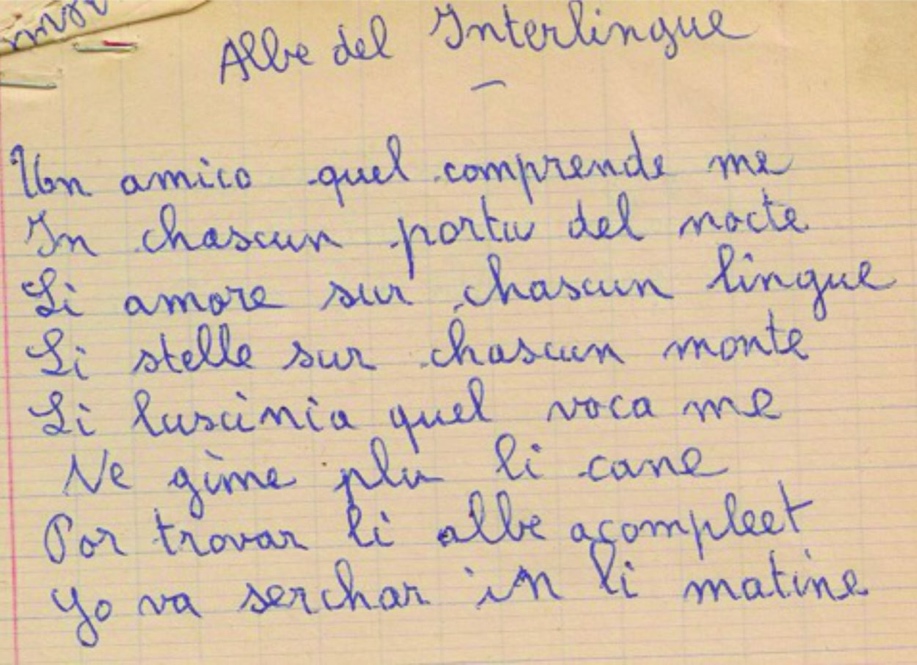 Albe del Interlingue
Un amico quel comprende me
In chascun portu del nocte
Li amore sur chascun lingue
Li stelle sur chascun monte
Li luscinia quel voca me
Ne gime plu li cane
Por trovar li albe acompleet
Yo va serchar in li matine